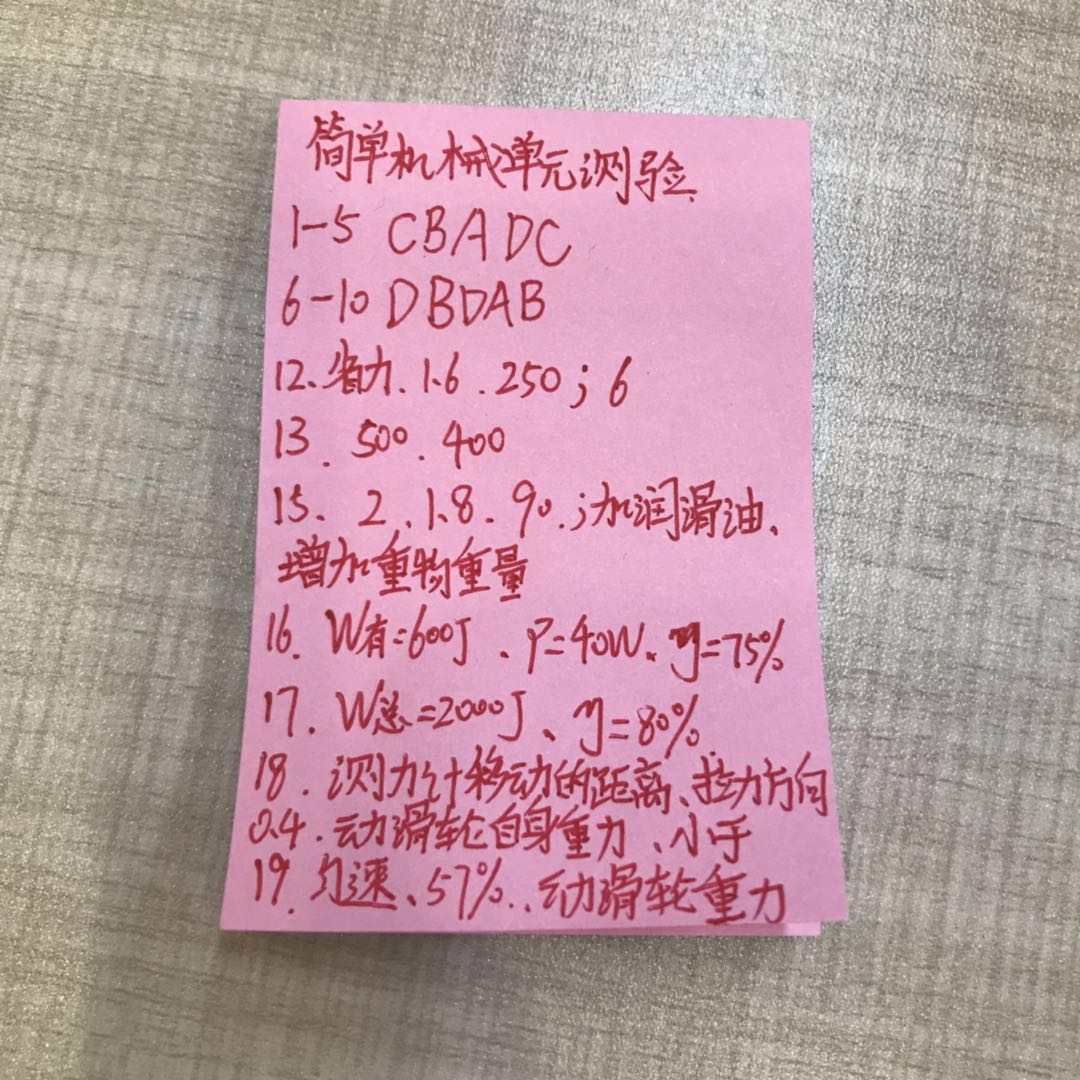 简单机械单元测验
1-5 CBADC
6-10 DBDAB
12、省力、1.6、250；6
13、500、400
15、2、1.8、90、；加润滑油、
增加重物重量
16、W有=600J、P=40W、η=75%
17、W总=2000J、η=80%
18、测力计移动的距离、拉力方向
0.4、动滑轮自身重力、小于
19、匀速、57%、动滑轮重力